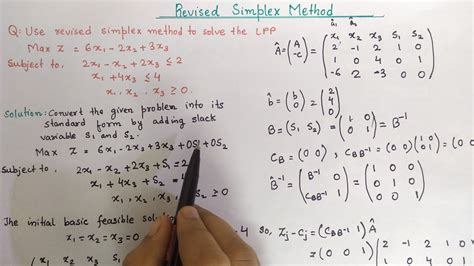 Revised Simplex Method
Q: Use revised simplex method to solve the LPP
Max Z = 6x₁ - 2x₂ + 3x₃
Subject to. 2x₁ - x₂ + 2x₃ ≤ 2
x₁ + 4x₃ ≤ 4
x₁, x₂, x₃ ≥ 0.
Solution: Convert the given problem into its
standard form by adding slack
variable S₁ and S₂.
Max Z = 6x₁ - 2x₂ + 3x₃ + 0S₁ + 0S₂
Subject to 2x₁ - x₂ + 2x₃ + S₁ = 2
x₁ + 4x₃ + S₂ =
x₁, x₂, x₃, S₂ ≥ 0
The initial basic feasible solution
x₁ = x₂ = x₃ = 0 4
x₁ x₂ x₃ S₁ S₂
Â = (A / -c) = 2 -1 2 1 0
1 0 4 0 1
-6 2 -3 0 0
b̂ = (b / 0) = (2 / 4 / 0)
B = (S₁ S₂) = (1 0 / 0 1) = B⁻¹
C_B = (0 0), (C_B B⁻¹ 1) = (0 0)(1 0 / 0 1)
= (0 0 1)
So, Zj - Cj = (C_B B⁻¹ 1) Â
= (0 0 1) (2 -1 2 1 0
1 0 4 0 1